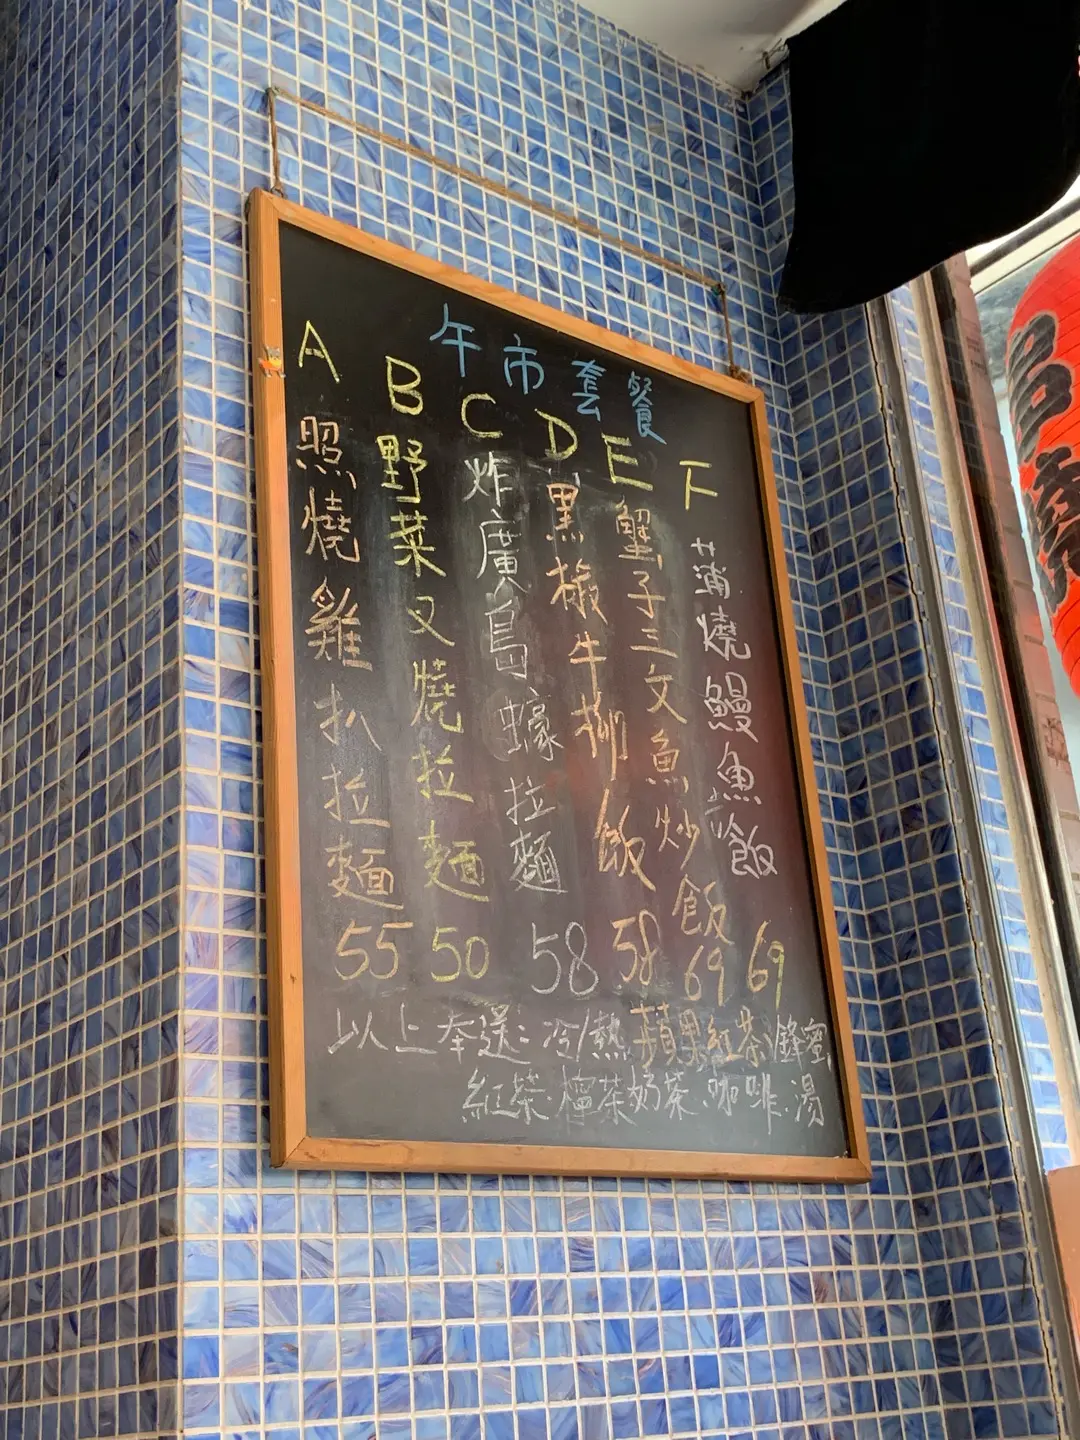 午市套餐
A 照燒雞扒拉麵 55
B 野菜叉燒拉麵 50
C 炸廣島蠔拉麵 58
D 黑椒牛柳飯 58
E 蟹子三文魚炒飯 69
F 蒲燒鰻魚飯 69
以上奉送:冷/熱蘋果紅茶、鋒蜜
紅茶、檸茶、奶茶、咖啡、湯